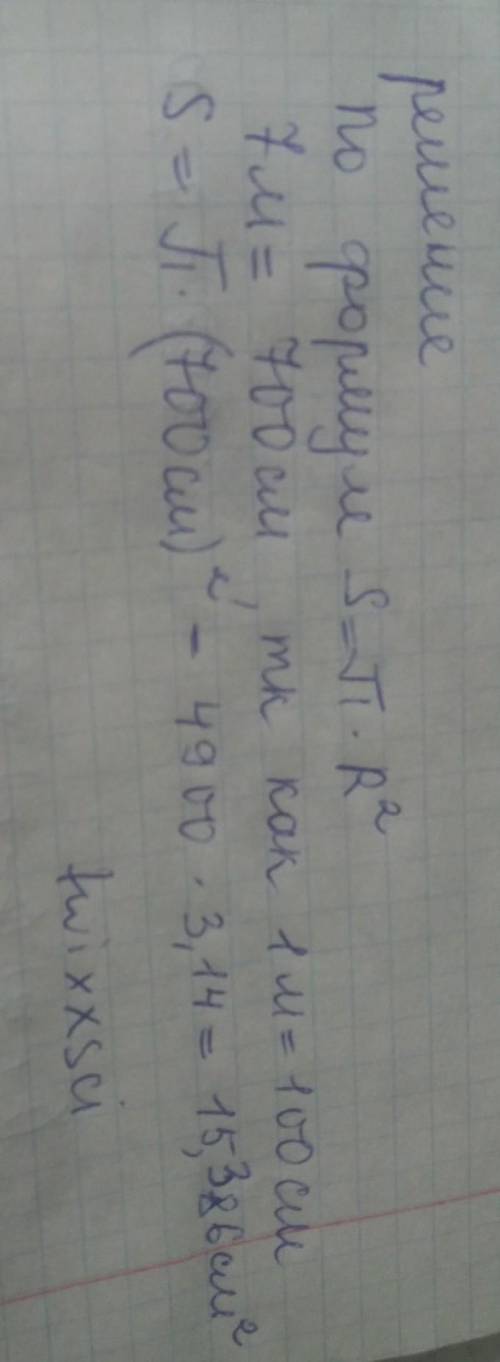 решение
по формуле S=π·R²
7м = 700см, тк как 1м=100см
S = π·(700см)² - 4900·3,14= 15,386см²
twixxsci